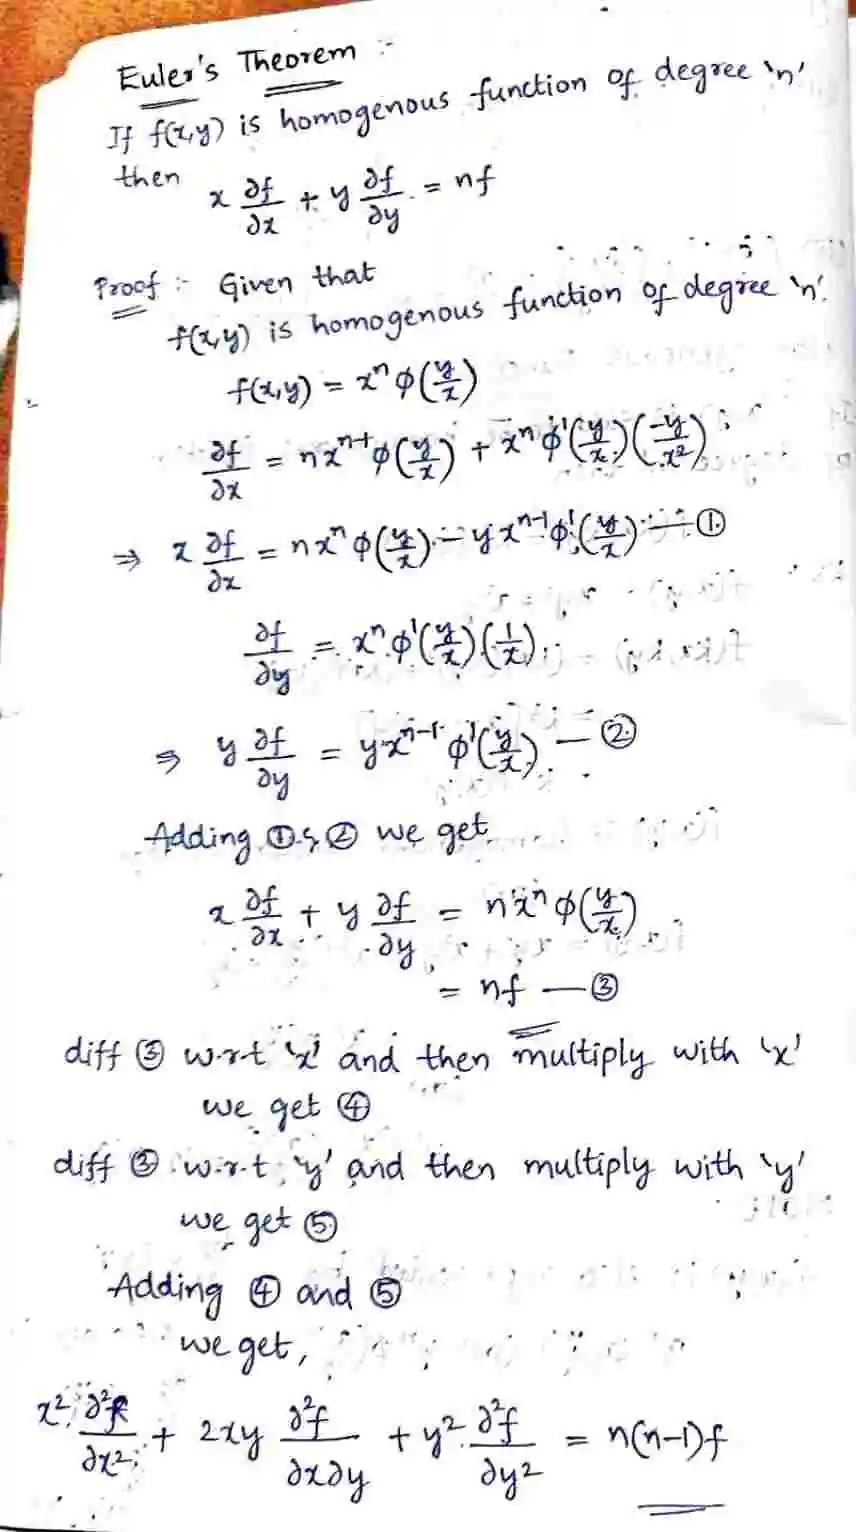 Euler's Theorem :-
If f(x,y) is homogenous function of degree 'n'
then x ∂f/∂x + y ∂f/∂y = nf
Proof :- Given that
f(x,y) is homogenous function of degree 'n'.
f(x,y) = xⁿ φ(y/x)
∂f/∂x = nxⁿ⁻¹ φ(y/x) + xⁿ φ'(y/x) (-y/x²)
⇒ x ∂f/∂x = nxⁿ φ(y/x) - yxⁿ⁻¹ φ'(y/x) — ①
∂f/∂y = xⁿ φ'(y/x) (1/x)
⇒ y ∂f/∂y = yxⁿ⁻¹ φ'(y/x) — ②
Adding ① & ② we get
x ∂f/∂x + y ∂f/∂y = nxⁿ φ(y/x)
= nf — ③
diff ③ w.r.t 'x' and then multiply with 'x'
we get ④
diff ③ w.r.t 'y' and then multiply with 'y'
we get ⑤
Adding ④ and ⑤
we get,
x² ∂²f/∂x² + 2xy ∂²f/∂x∂y + y² ∂²f/∂y² = n(n-1)f